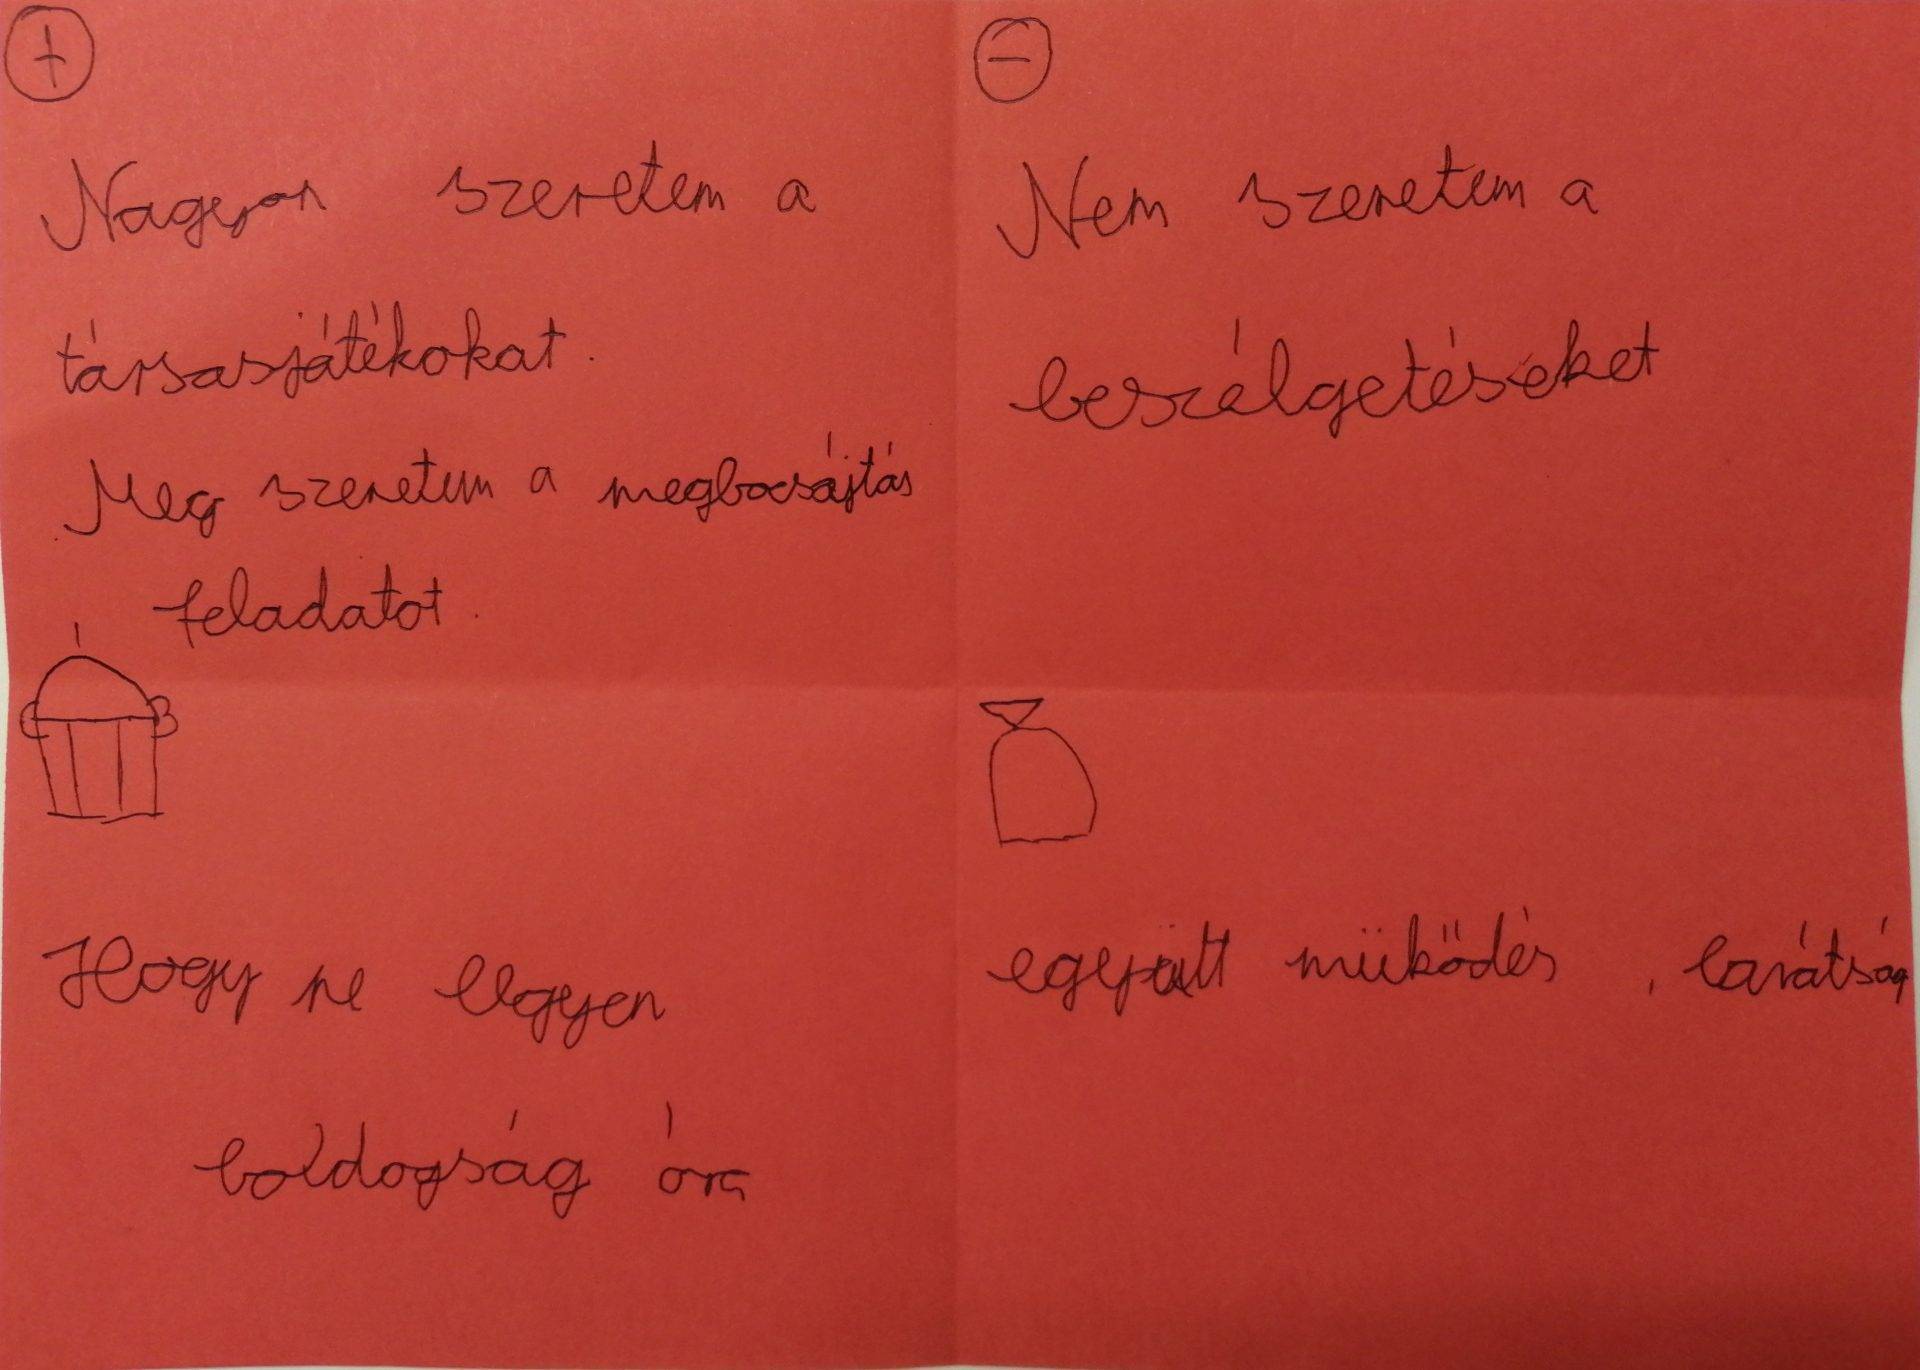 +
Nagyon szeretem a
társasjátékokat.
Meg szeretem a megbocsájtás
feladatot.
−
Nem szeretem a
beszélgetéseket
Hogy ne legyen
boldogság óra
együtt müködés, barátság